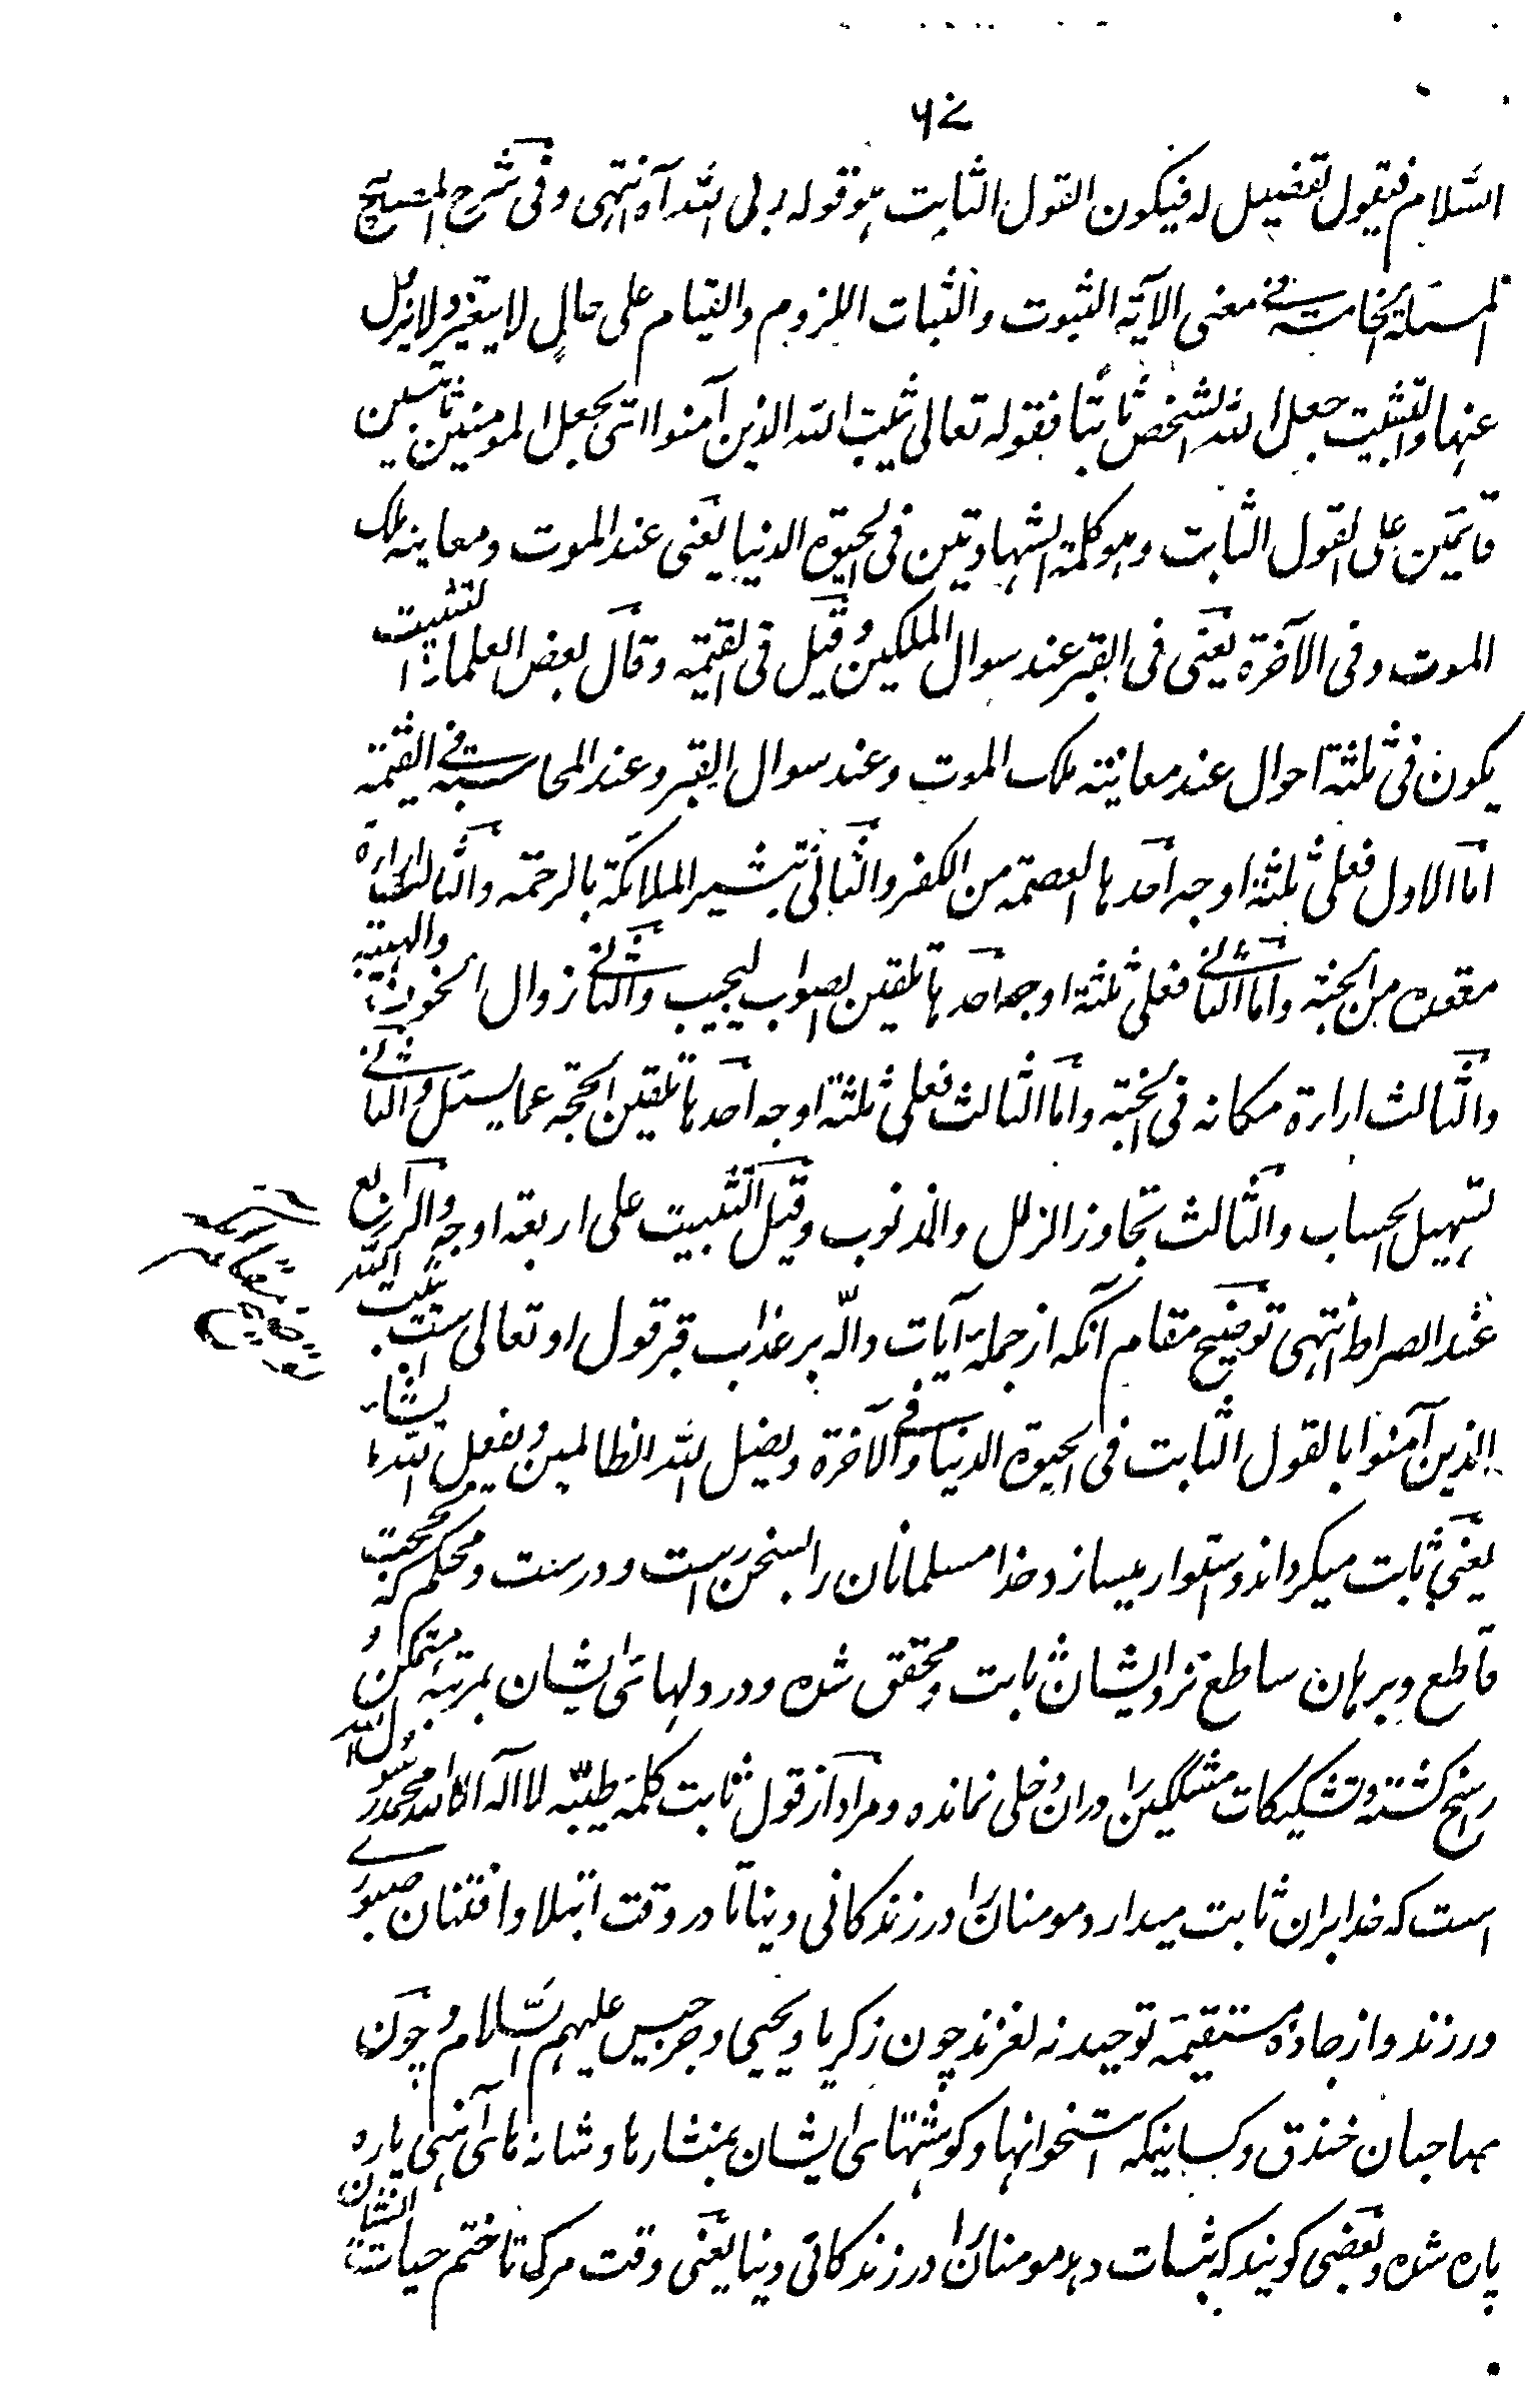 ٦٧
السّلام فیقول تفضیل له فیکون القول الثابت هو قوله ربی اللّه آه انتهی وفی شرح المصابیح
المسئلة الخامسة فی معنی الآیة الثبوت والثبات اللزوم والقیام علی حالٍ لا یتغیر ولا یزل
عنها والتثبیت جعل اللّه الشخص ثابتًا فقوله تعالی یثبت اللّه الذین آمنوا ای یجعل المومنین ثابتین
قائمین علی القول الثابت وهو کلمة الشهادتین فی الحیوة الدنیا یعنی عند الموت ومعاینه ملک
الموت وفی الآخرة یعنی فی القبر عند سوال الملکین وقیل فی القیمة وقال بعض العلماء التثبیت
یکون فی ثلثة احوال عند معاینة ملک الموت وعند سوال القبر وعند المحاسبة فی القیمة
اما الاول فعلی ثلثة اوجه احدها العصمة من الکفر والثانی تبشیر الملائکة بالرحمة والثالث اراءة
مقعده من الجنة واما الثانی فعلی ثلثة اوجه احدها تلقین الصواب لیجیب والثانی زوال الخوف والهیبة
والثالث اراءة مکانه فی الجنة واما الثالث فعلی ثلثة اوجه احدها تلقین الحجة عما یسئل والثانی
تسهیل الحساب والثالث تجاوز الزلل والذنوب وقیل التثبیت علی اربعة اوجه والرابع
عند الصراط انتهی توضیح مقام آنکه از جملهٔ آیات دالّه بر عذاب قبر قول او تعالی ست یثبت اللّه
الذین آمنوا بالقول الثابت فی الحیوة الدنیا وفی الآخرة ویضل اللّه الظالمین ویفعل اللّه ما یشاء
یعنی ثابت میکرداند واستوار میسازد خدا مسلمانان را بسخن راست ودرست ومحکم که بحجت
قاطع وبرهان ساطع نزد ایشان ثابت ومحقق شده ودر دلهائی ایشان بمرتبهٔ متمکن و
راسخ کشته وتشکیکات مشککین را دران دخلی نمانده ومراد از قول ثابت کلمهٔ طیّبه لا اله الا اللّه محمد رسول اللّه
است که خدا بران ثابت میدارد مومنان را در زندکانی دنیا تا در وقت ابتلا وافتنان صبوری
ورزند واز جادهٔ مستقیمهٔ توحید نه لغزند چون زکریا ویحیی وجرجیس علیهم السّلام وچون
صاحبان خندق وکسانیکه استخوانها وکوشتهای ایشان بمنشارها وشانه های آهنی پاره
پاره شده وبعضی کویند که ثبات دهد مومنان را در زندکانی دنیا یعنی وقت مرک تا ختم حیات ایشان